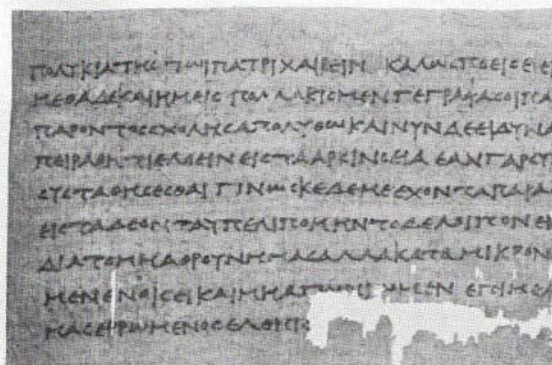 ΠΟΛΥΚΡΑΤΗΣ ΤΩΙ ΠΑΤΡΙ ΧΑΙΡΕΙΝ ΚΑΛΩΣ ΠΟΕΙΣ ΕΙ Ε
ΜΕΘΑ ΔΕ ΚΑΙ ΗΜΕΙΣ ΠΟΛΛΑΚΙΣ ΜΕΝ ΓΕΓΡΑΦΑ ΣΟΙ ΠΑ
ΠΑΡΟΝΤΟΣ ΣΧΟΛΗΣ ΑΠΟΛΥΘΩ ΚΑΙ ΝΥΝ ΔΕ ΕΙ ΔΥΝΑ
ΠΕΙΡΑΘΗΤΙ ΕΛΘΕΙΝ ΕΙΣ ΤΑ ΑΡΣΙΝΟΕΙΑ ΕΑΝ ΓΑΡ ΣΥ
ΣΥΣΤΑΘΗΣΕΣΘΑΙ ΓΙΝΩΣΚΕ ΔΕ ΜΕ ΕΧΟΝΤΑ ΠΑΡΑ
ΕΙΣ ΤΑ ΔΕΟΝΤΑ ΥΠΕΛΙΠΟΜΗΝ ΤΟ ΔΕ ΛΟΙΠΟΝ ΕΙ
ΔΙΑ ΤΟ ΜΗ ΑΘΡΟΥΝ ΗΜΑΣ ΑΛΛΑ ΚΑΤΑ ΜΙΚΡΟΝ
ΜΕΝ ΕΝ ΟΙΣ ΕΙ ΚΑΙ ΜΗ ΑΓΩΝΙΩΜΕΝ ΕΠΙΜΕΛ
ΜΑΣ ΕΡΡΩΜΕΝΟΣ ΕΛΘΗΙΣ